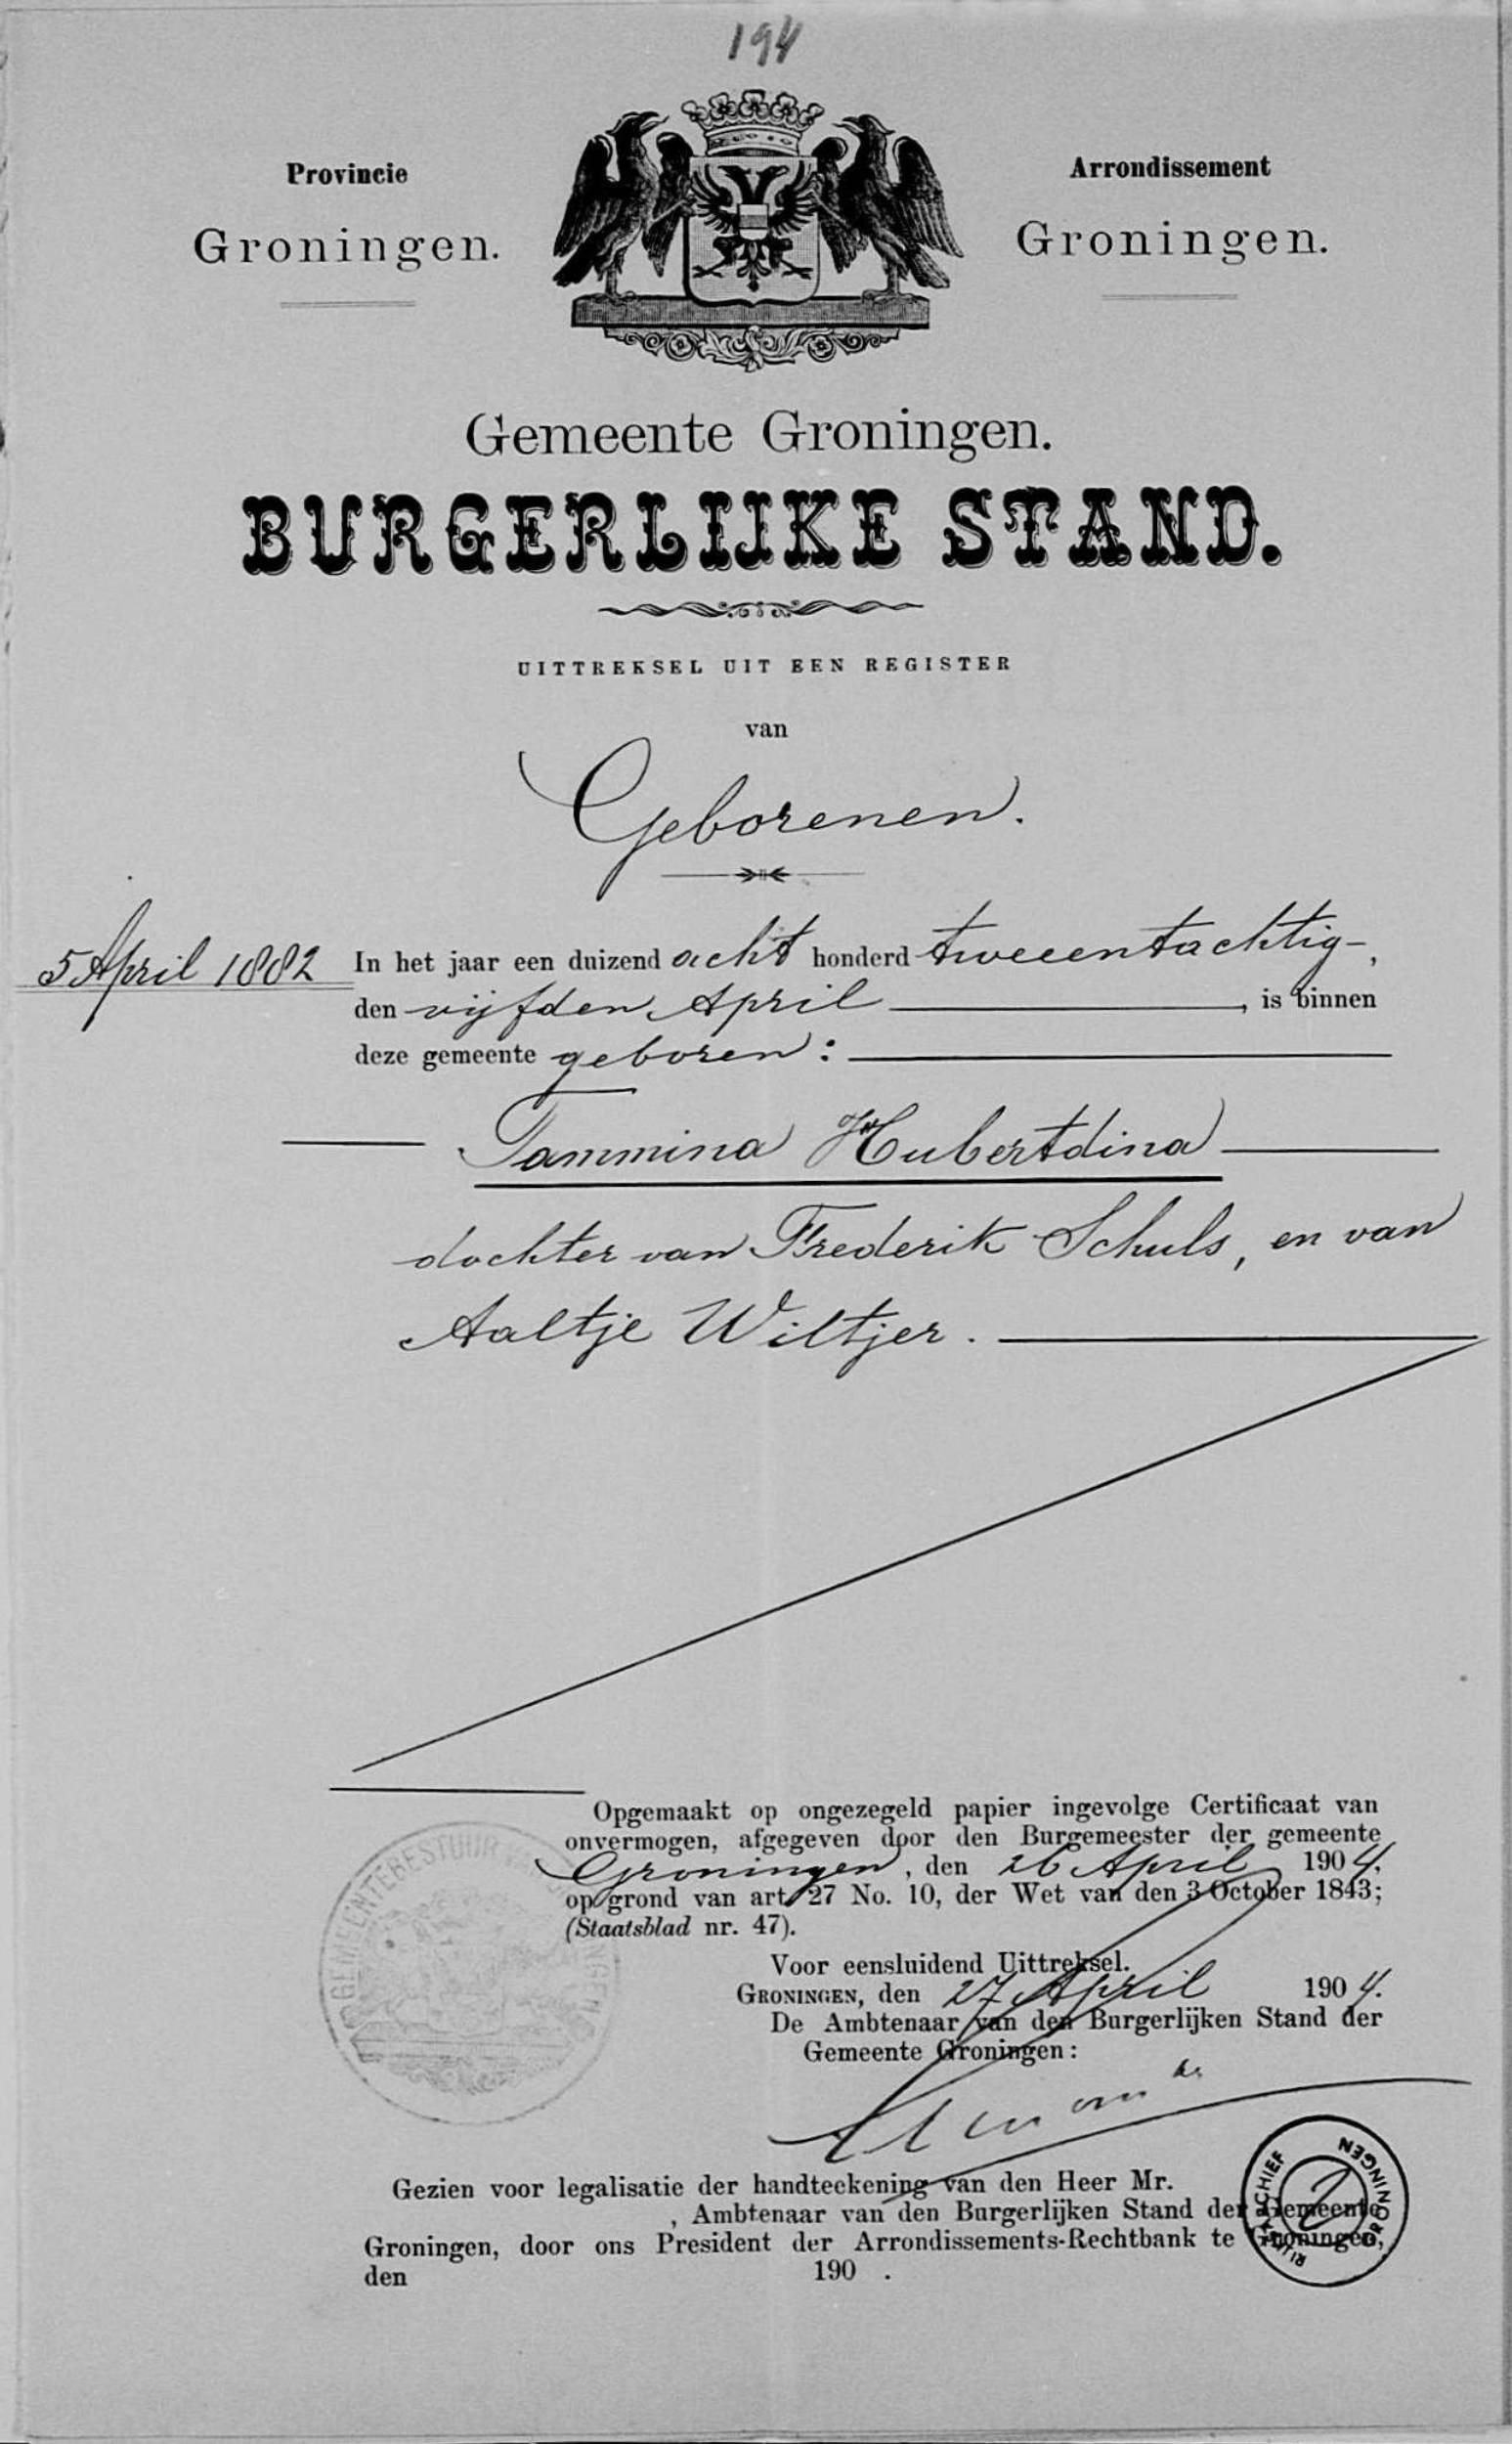 194
Provincie
Groningen.
Arrondissement
Groningen.
Gemeente Groningen.
BURGERLIJKE STAND.
UITTREKSEL UIT EEN REGISTER
van
Geborenen.
5 April 1882
In het jaar een duizend acht honderd tweeentachtig,
den vijfden April, is binnen
deze gemeente geboren:
Tammina Hubertdina
dochter van Frederik Schuls, en van
Aaltje Wiltjer.
Opgemaakt op ongezegeld papier ingevolge Certificaat van
onvermogen, afgegeven door den Burgemeester der gemeente
Groningen, den 26 April 1904.
op grond van art. 27 No. 10, der Wet van den 3 October 1843;
(Staatsblad nr. 47).
GEMEENTEBESTUUR
Voor eensluidend Uittreksel.
GRONINGEN, den 27 April 1904.
De Ambtenaar van den Burgerlijken Stand der
Gemeente Groningen:
Gezien voor legalisatie der handteekening van den Heer Mr.
, Ambtenaar van den Burgerlijken Stand der Gemeente
Groningen, door ons President der Arrondissements-Rechtbank te Groningen,
den 190 .
RIJKSARCHIEF GRONINGEN